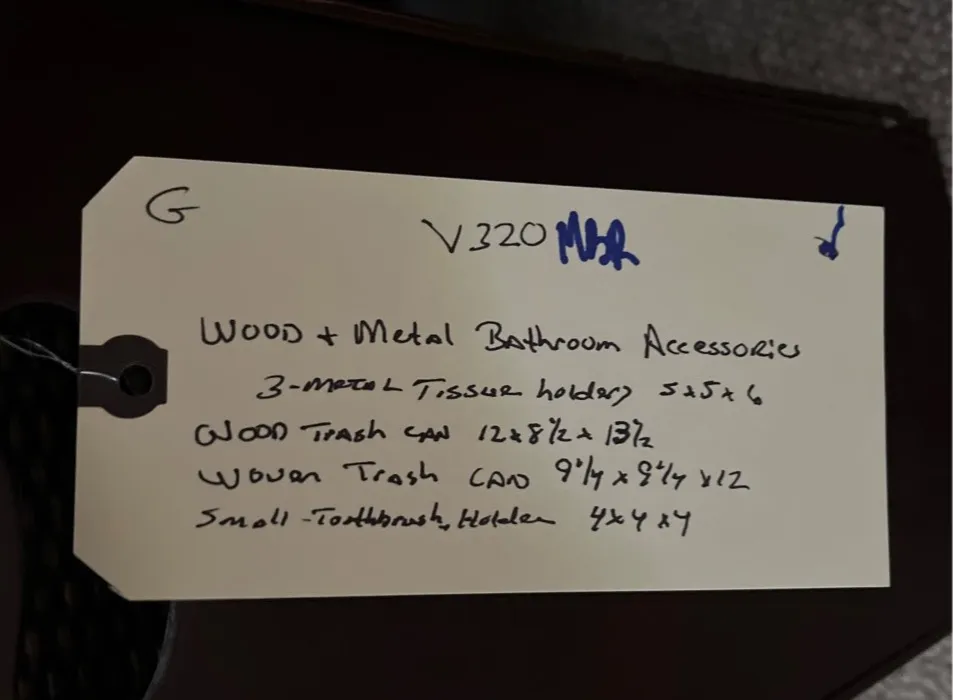 G
V320 MBR
Wood + Metal Bathroom Accessories
3-Metal Tissue holders 5x5x6
Wood Trash can 12x8 1/2 x 13 1/2
Woven Trash can 9 1/4 x 9 1/4 x 12
Small-Toothbrush Holder 4x4x4